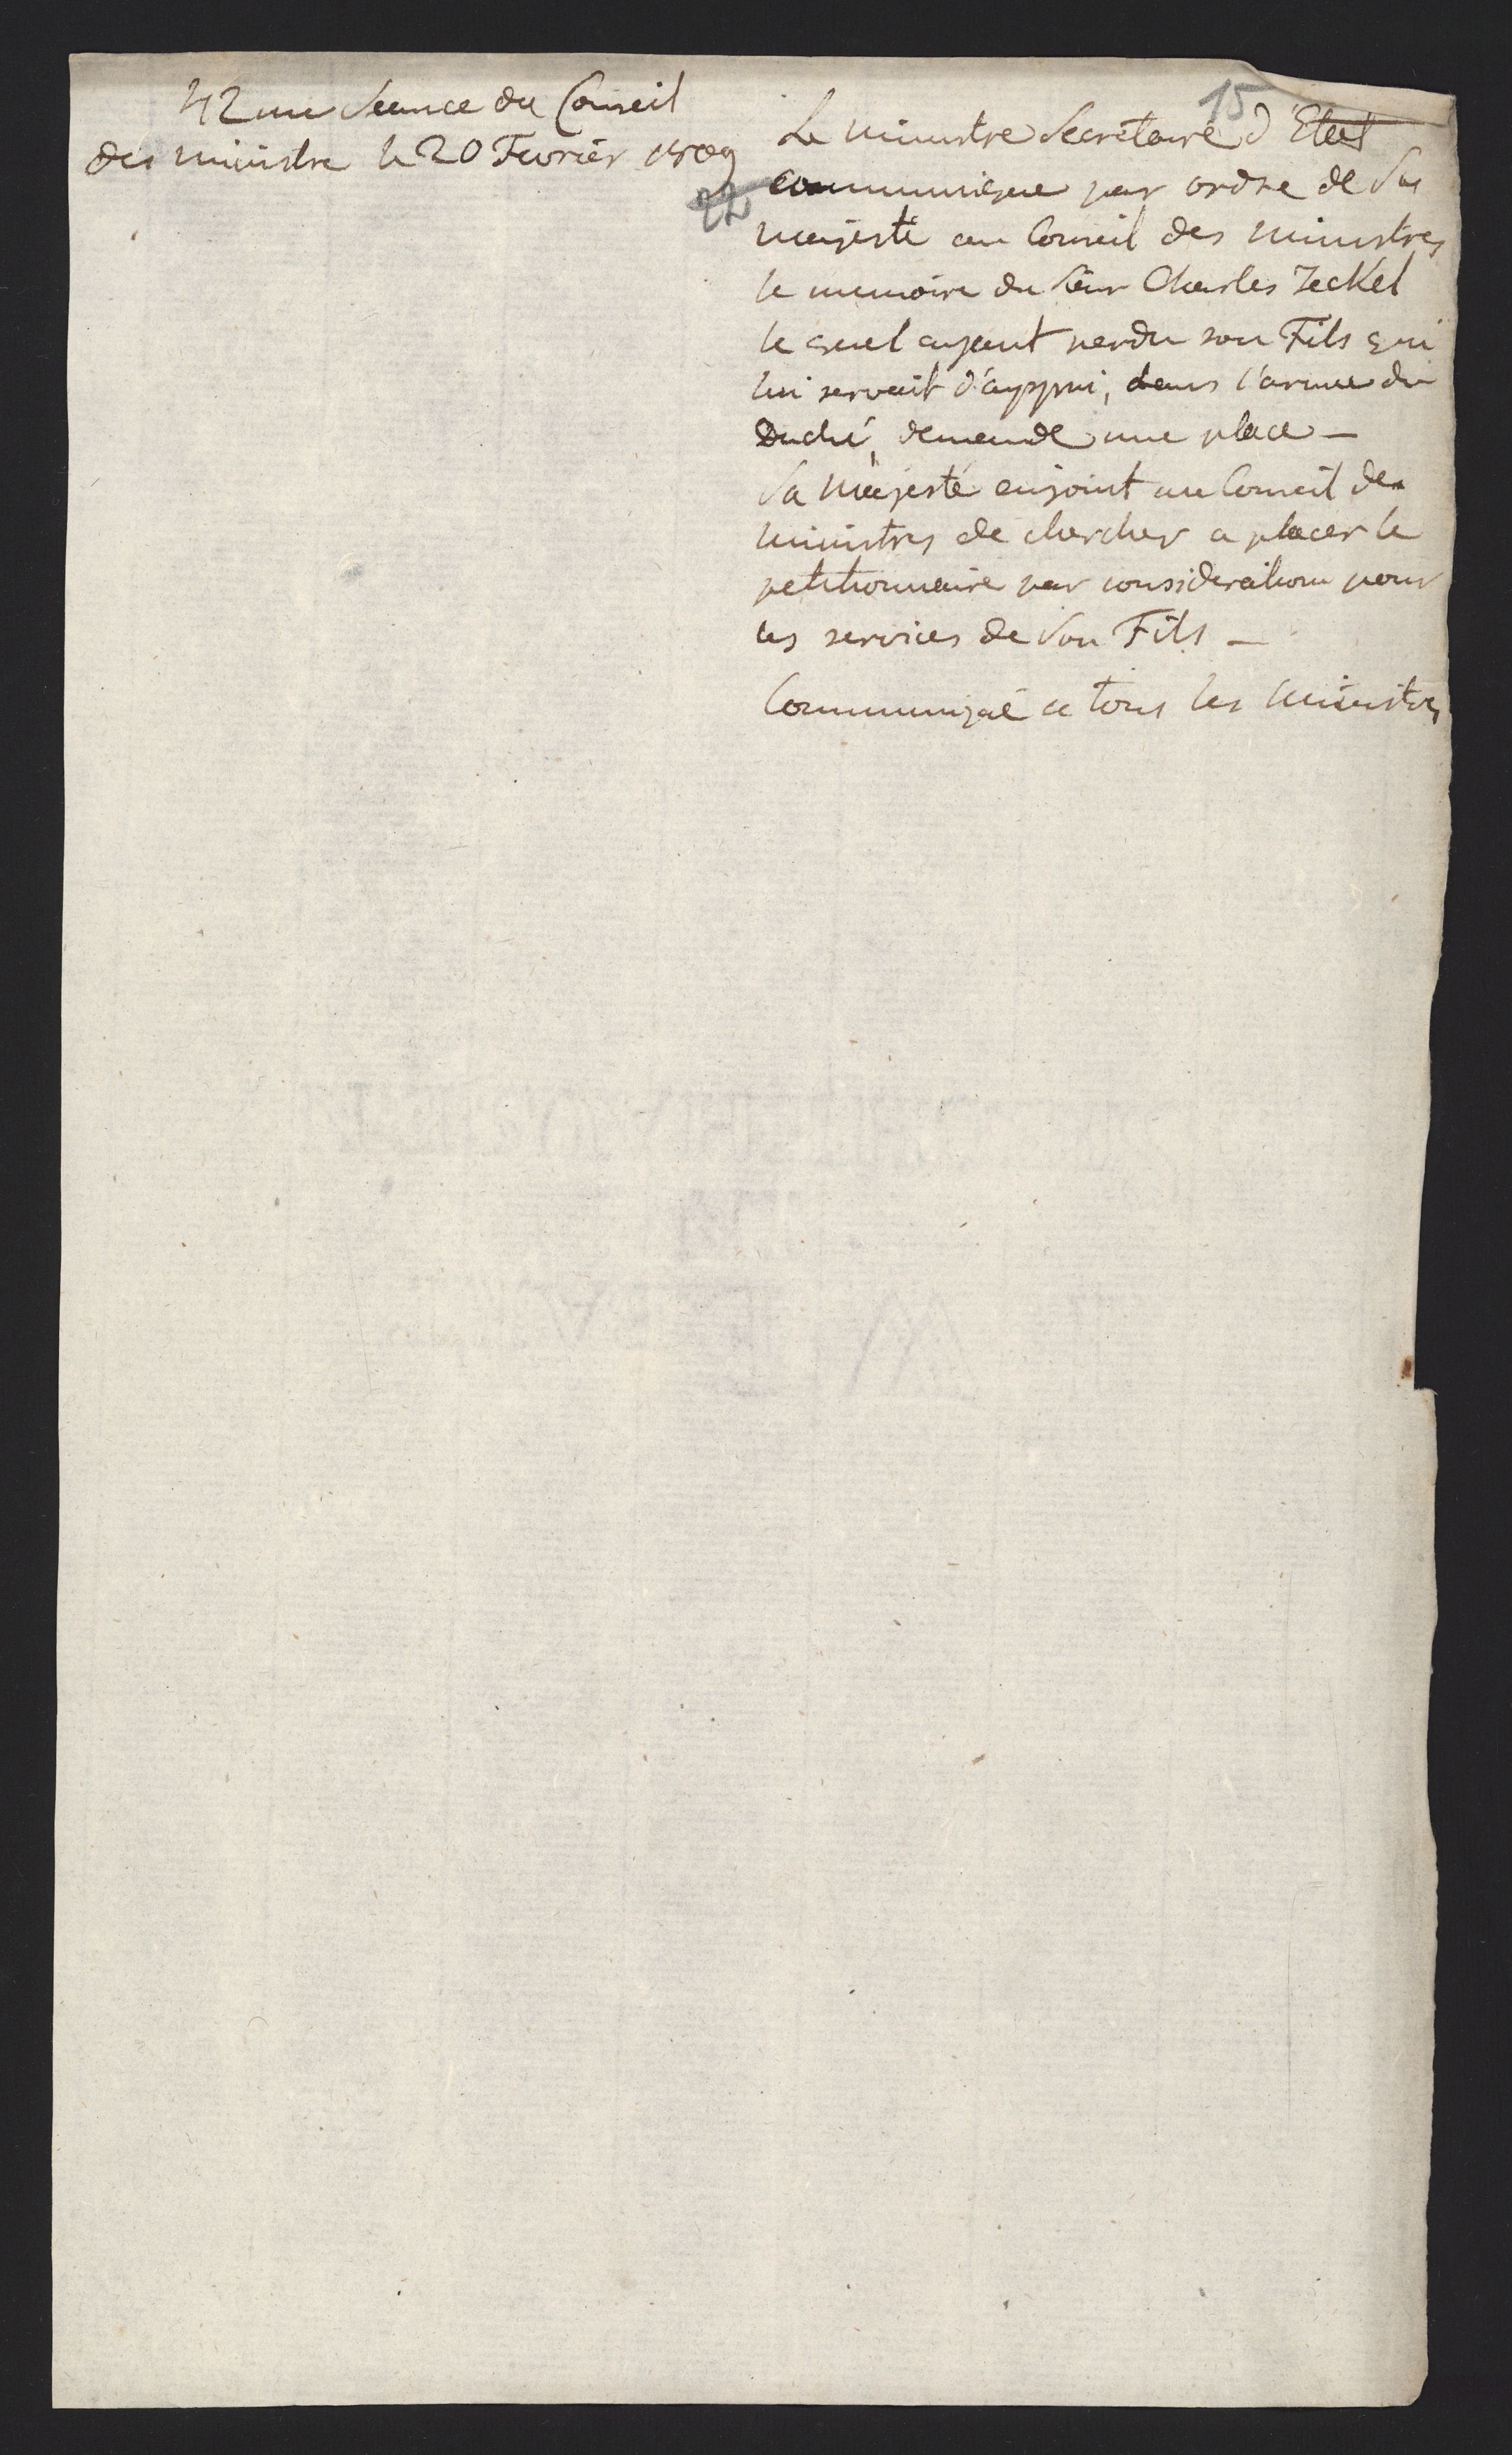 42me Seance du Conseil
des ministre le 20 Fevrier 1809
22
15
Le ministre Secretaire d'Etat
communique par ordre de Sa
majesté au Conseil des ministres
le memoire du Sieur Charles Jeckel
le quel ayant perdu son Fils qui
lui servait d'appui, dans l'armee du
Duché, demande une place –
Sa Majesté enjoint au Conseil des
ministres de chercher a placer le
petitionnaire par consideration pour
les services de Son Fils –
Communiqué a tous les ministres